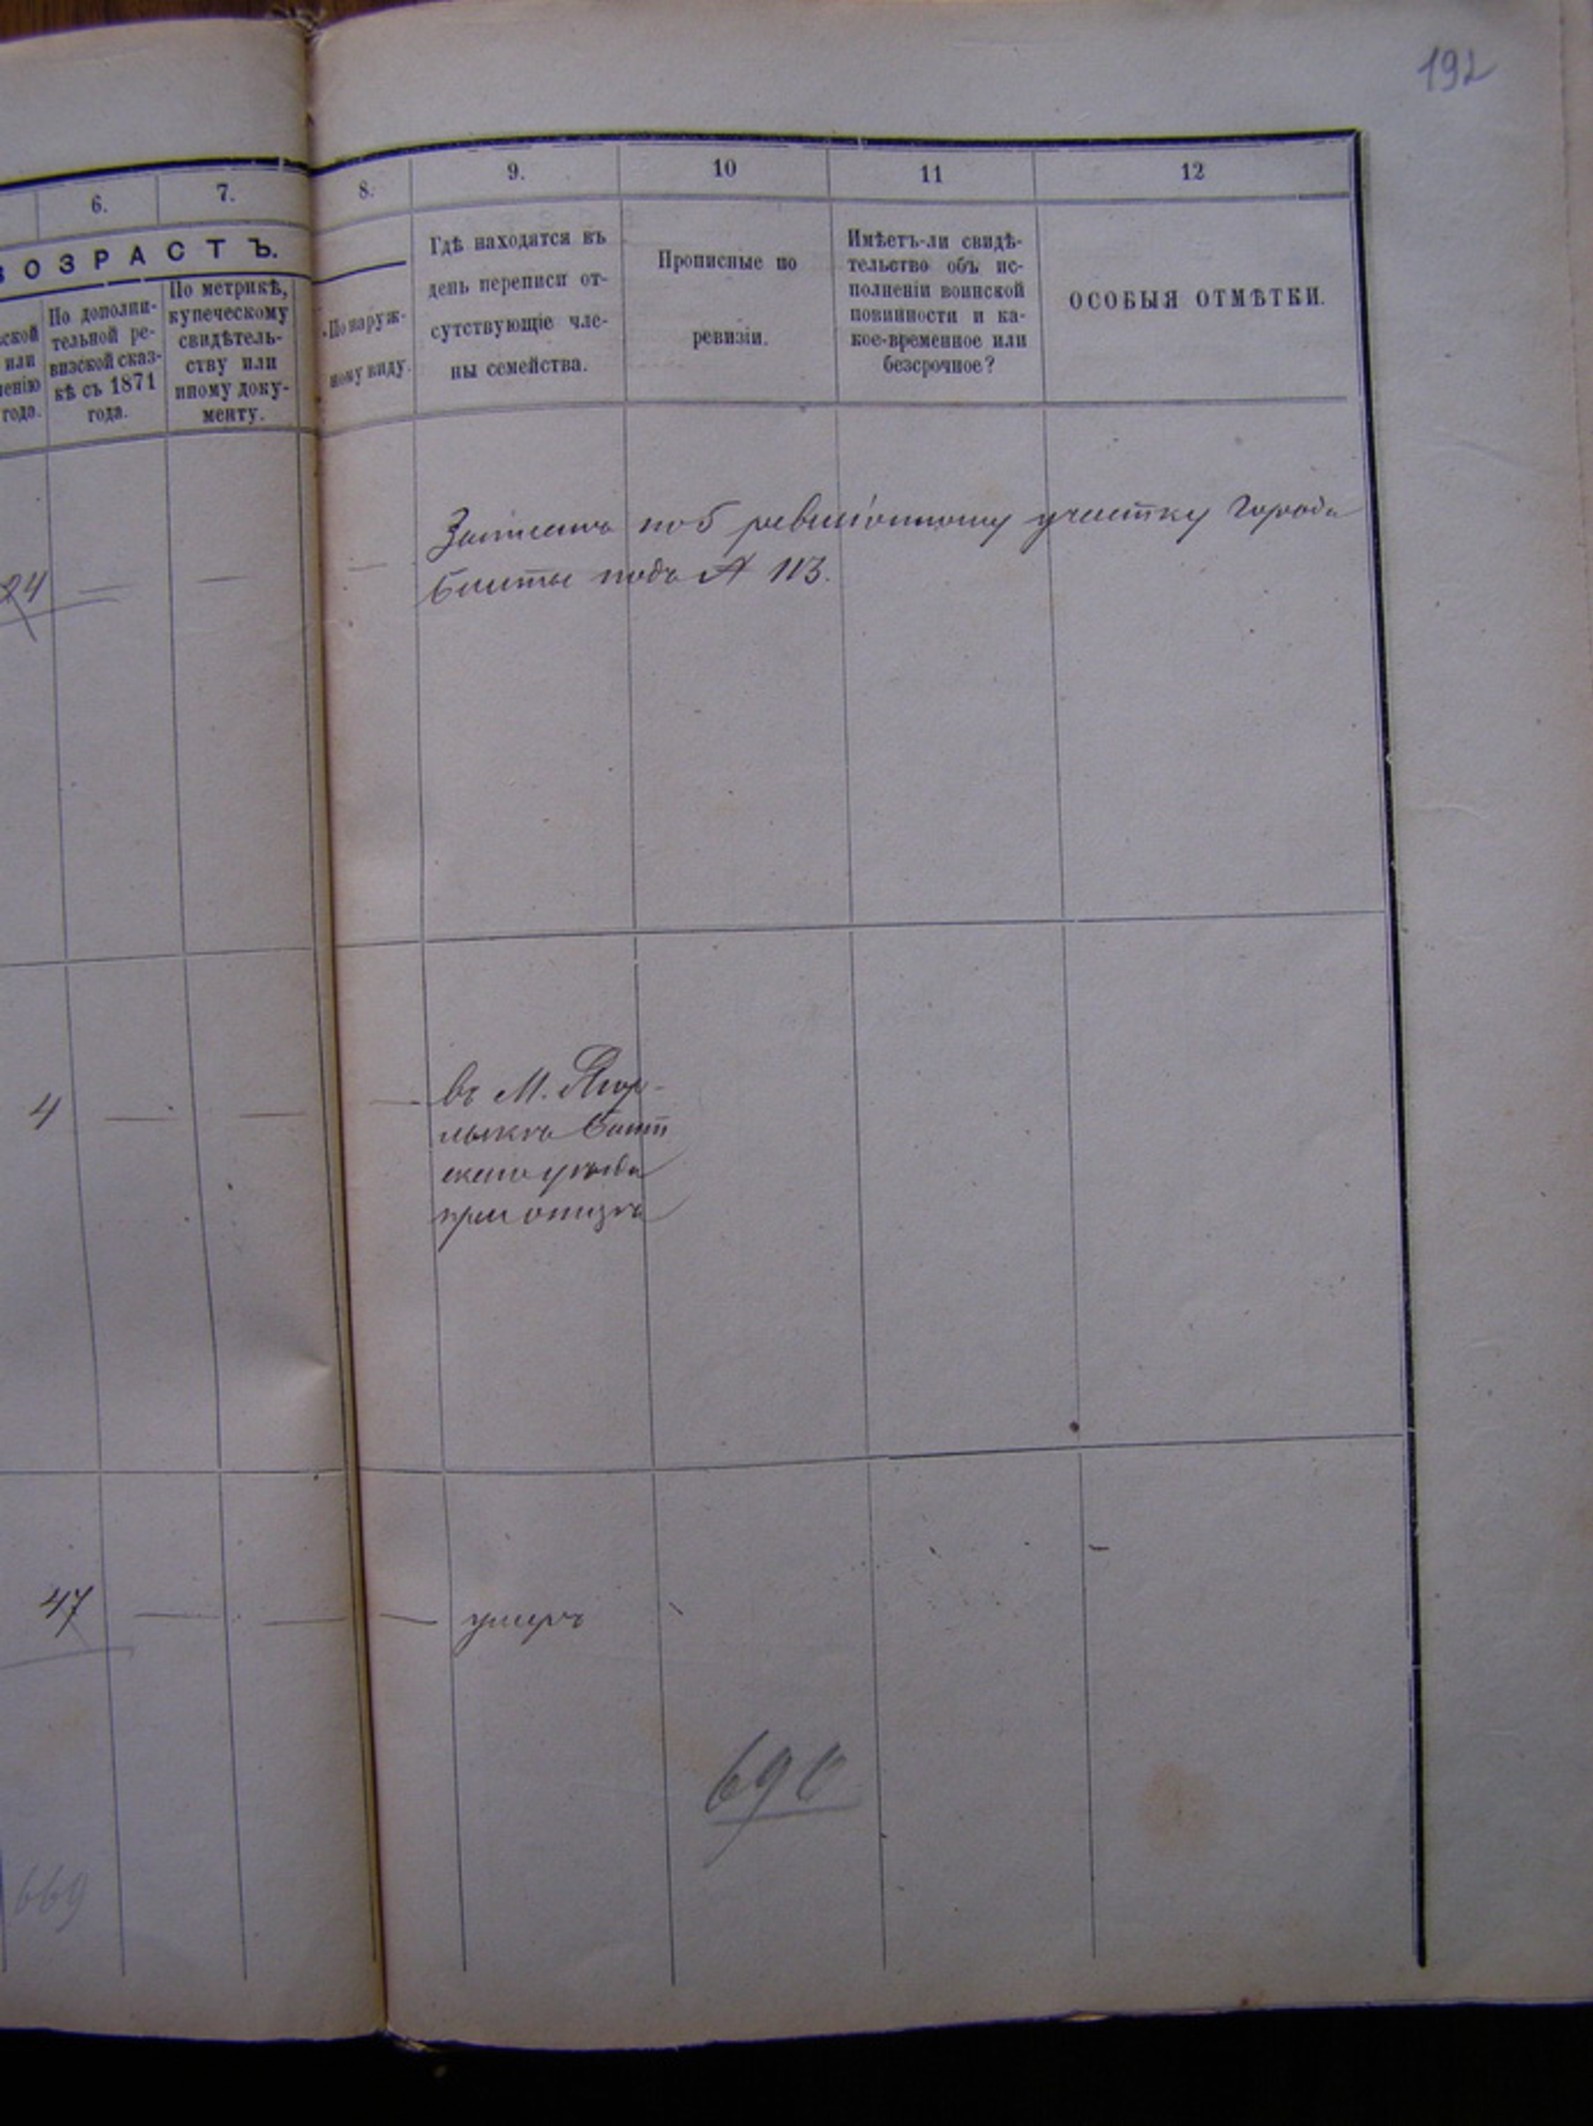 192
6.
7.
8.
9.
10
11
12
ВОЗРАСТЪ.
ской
или
ленію
года.
По дополни-
тельной ре-
визской сказ-
кѣ съ 1871
года.
По метрикѣ,
купеческому
свидѣтель-
ству или
иному доку-
менту.
По наруж-
ному виду.
Гдѣ находятся въ
день переписи от-
сутствующіе чле-
ны семейства.
Прописные по
ревизіи.
Имѣетъ-ли свидѣ-
тельство объ ис-
полненіи воинской
повинности и ка-
кое-временное или
безсрочное?
ОСОБЫЯ ОТМѢТКИ.
24
Записанъ по 5 ревизіонному участку города
Балты подъ № 113.
4
въ М. Ягор-
лыкѣ Балт
скаго уѣзда
при отцѣ
47
умеръ
690
669